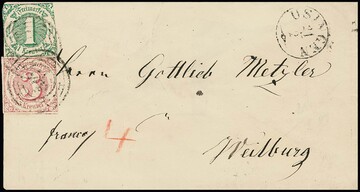 1
3
USINGEN
Herrn Gottlieb Metzler
franco 4
Weilburg